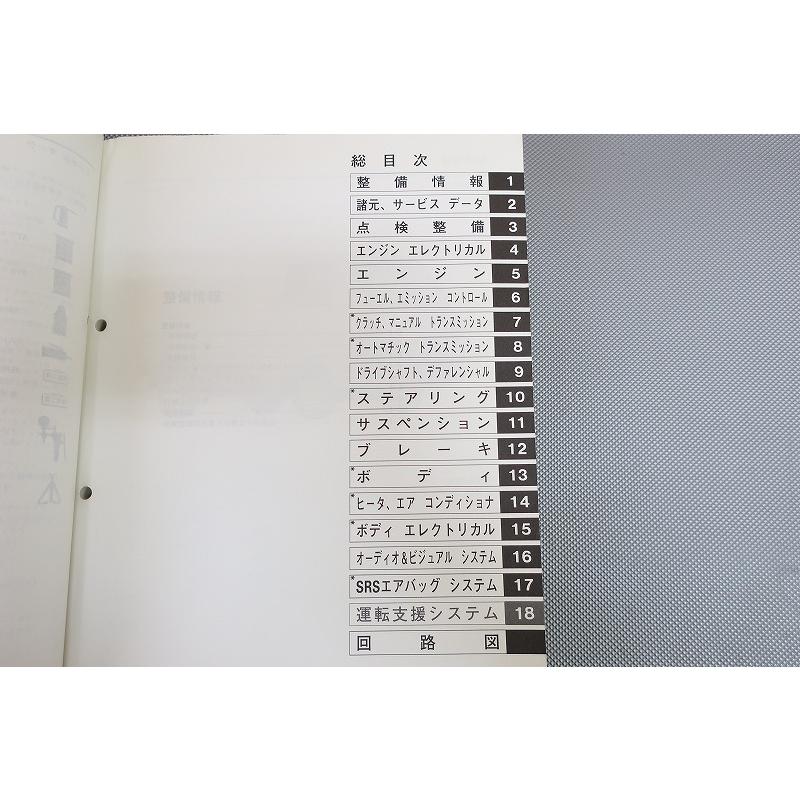 総目次
整備情報 1
諸元、サービス データ 2
点検整備 3
エンジン エレクトリカル 4
エンジン 5
フューエル、エミッション コントロール 6
*クラッチ、マニュアル トランスミッション 7
*オートマチック トランスミッション 8
ドライブシャフト、デファレンシャル 9
*ステアリング 10
サスペンション 11
ブレーキ 12
*ボディ 13
*ヒータ、エア コンディショナ 14
*ボディ エレクトリカル 15
オーディオ&ビジュアル システム 16
*SRSエアバッグ システム 17
運転支援システム 18
回路図